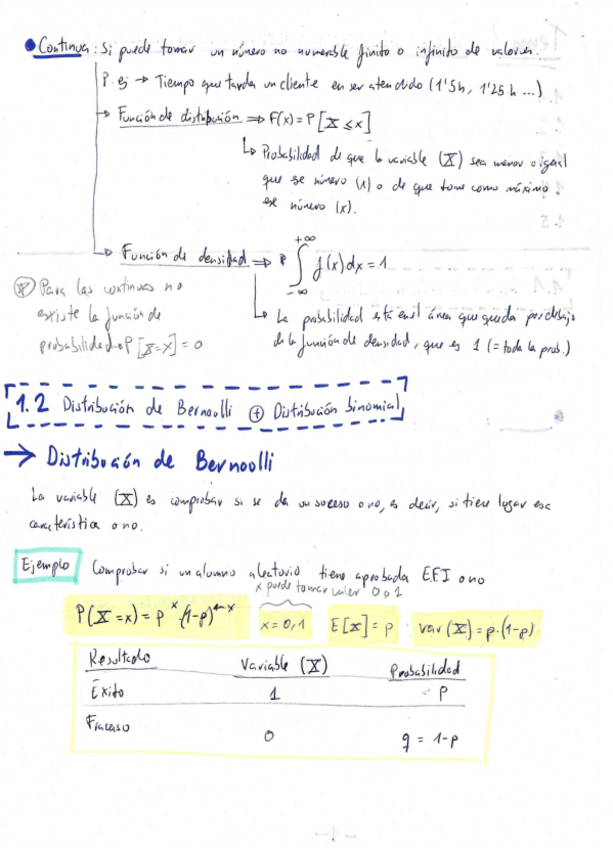 ● Continua: Si puede tomar un número no numerable finito o infinito de valores.
P. ej → Tiempo que tarda un cliente en ser atendido (1'5h, 1'25 h ...)
→ Función de distribución ⇒ F(x) = P[X ≤ x]
↳ Probabilidad de que la variable (X) sea menor o igual
que ese número (1) o de que tome como máximo
ese número (x).
→ Función de densidad ⇒ ∫ f(x)dx = 1
+∞
-∞
↳ La probabilidad está en el área que queda por debajo
de la función de densidad, que es 1 (= toda la prob.)
* Para las continuas no
existe la función de
probabilidad → P[X=x] = 0
1.2 Distribución de Bernoulli ⊕ Distribución binomial
→ Distribución de Bernoulli
La variable (X) es comprobar si se da un suceso o no, es decir, si tiene lugar esa
característica o no.
Ejemplo Comprobar si un alumno aleatorio tiene aprobada EFI o no
x puede tomar valor 0 o 1
P(X=x) = p^x · (1-p)^1-x x=0,1 E[X]=p var(X)=p·(1-p)
Resultado Variable (X) Probabilidad
Éxito 1 P
Fracaso 0 q = 1-p